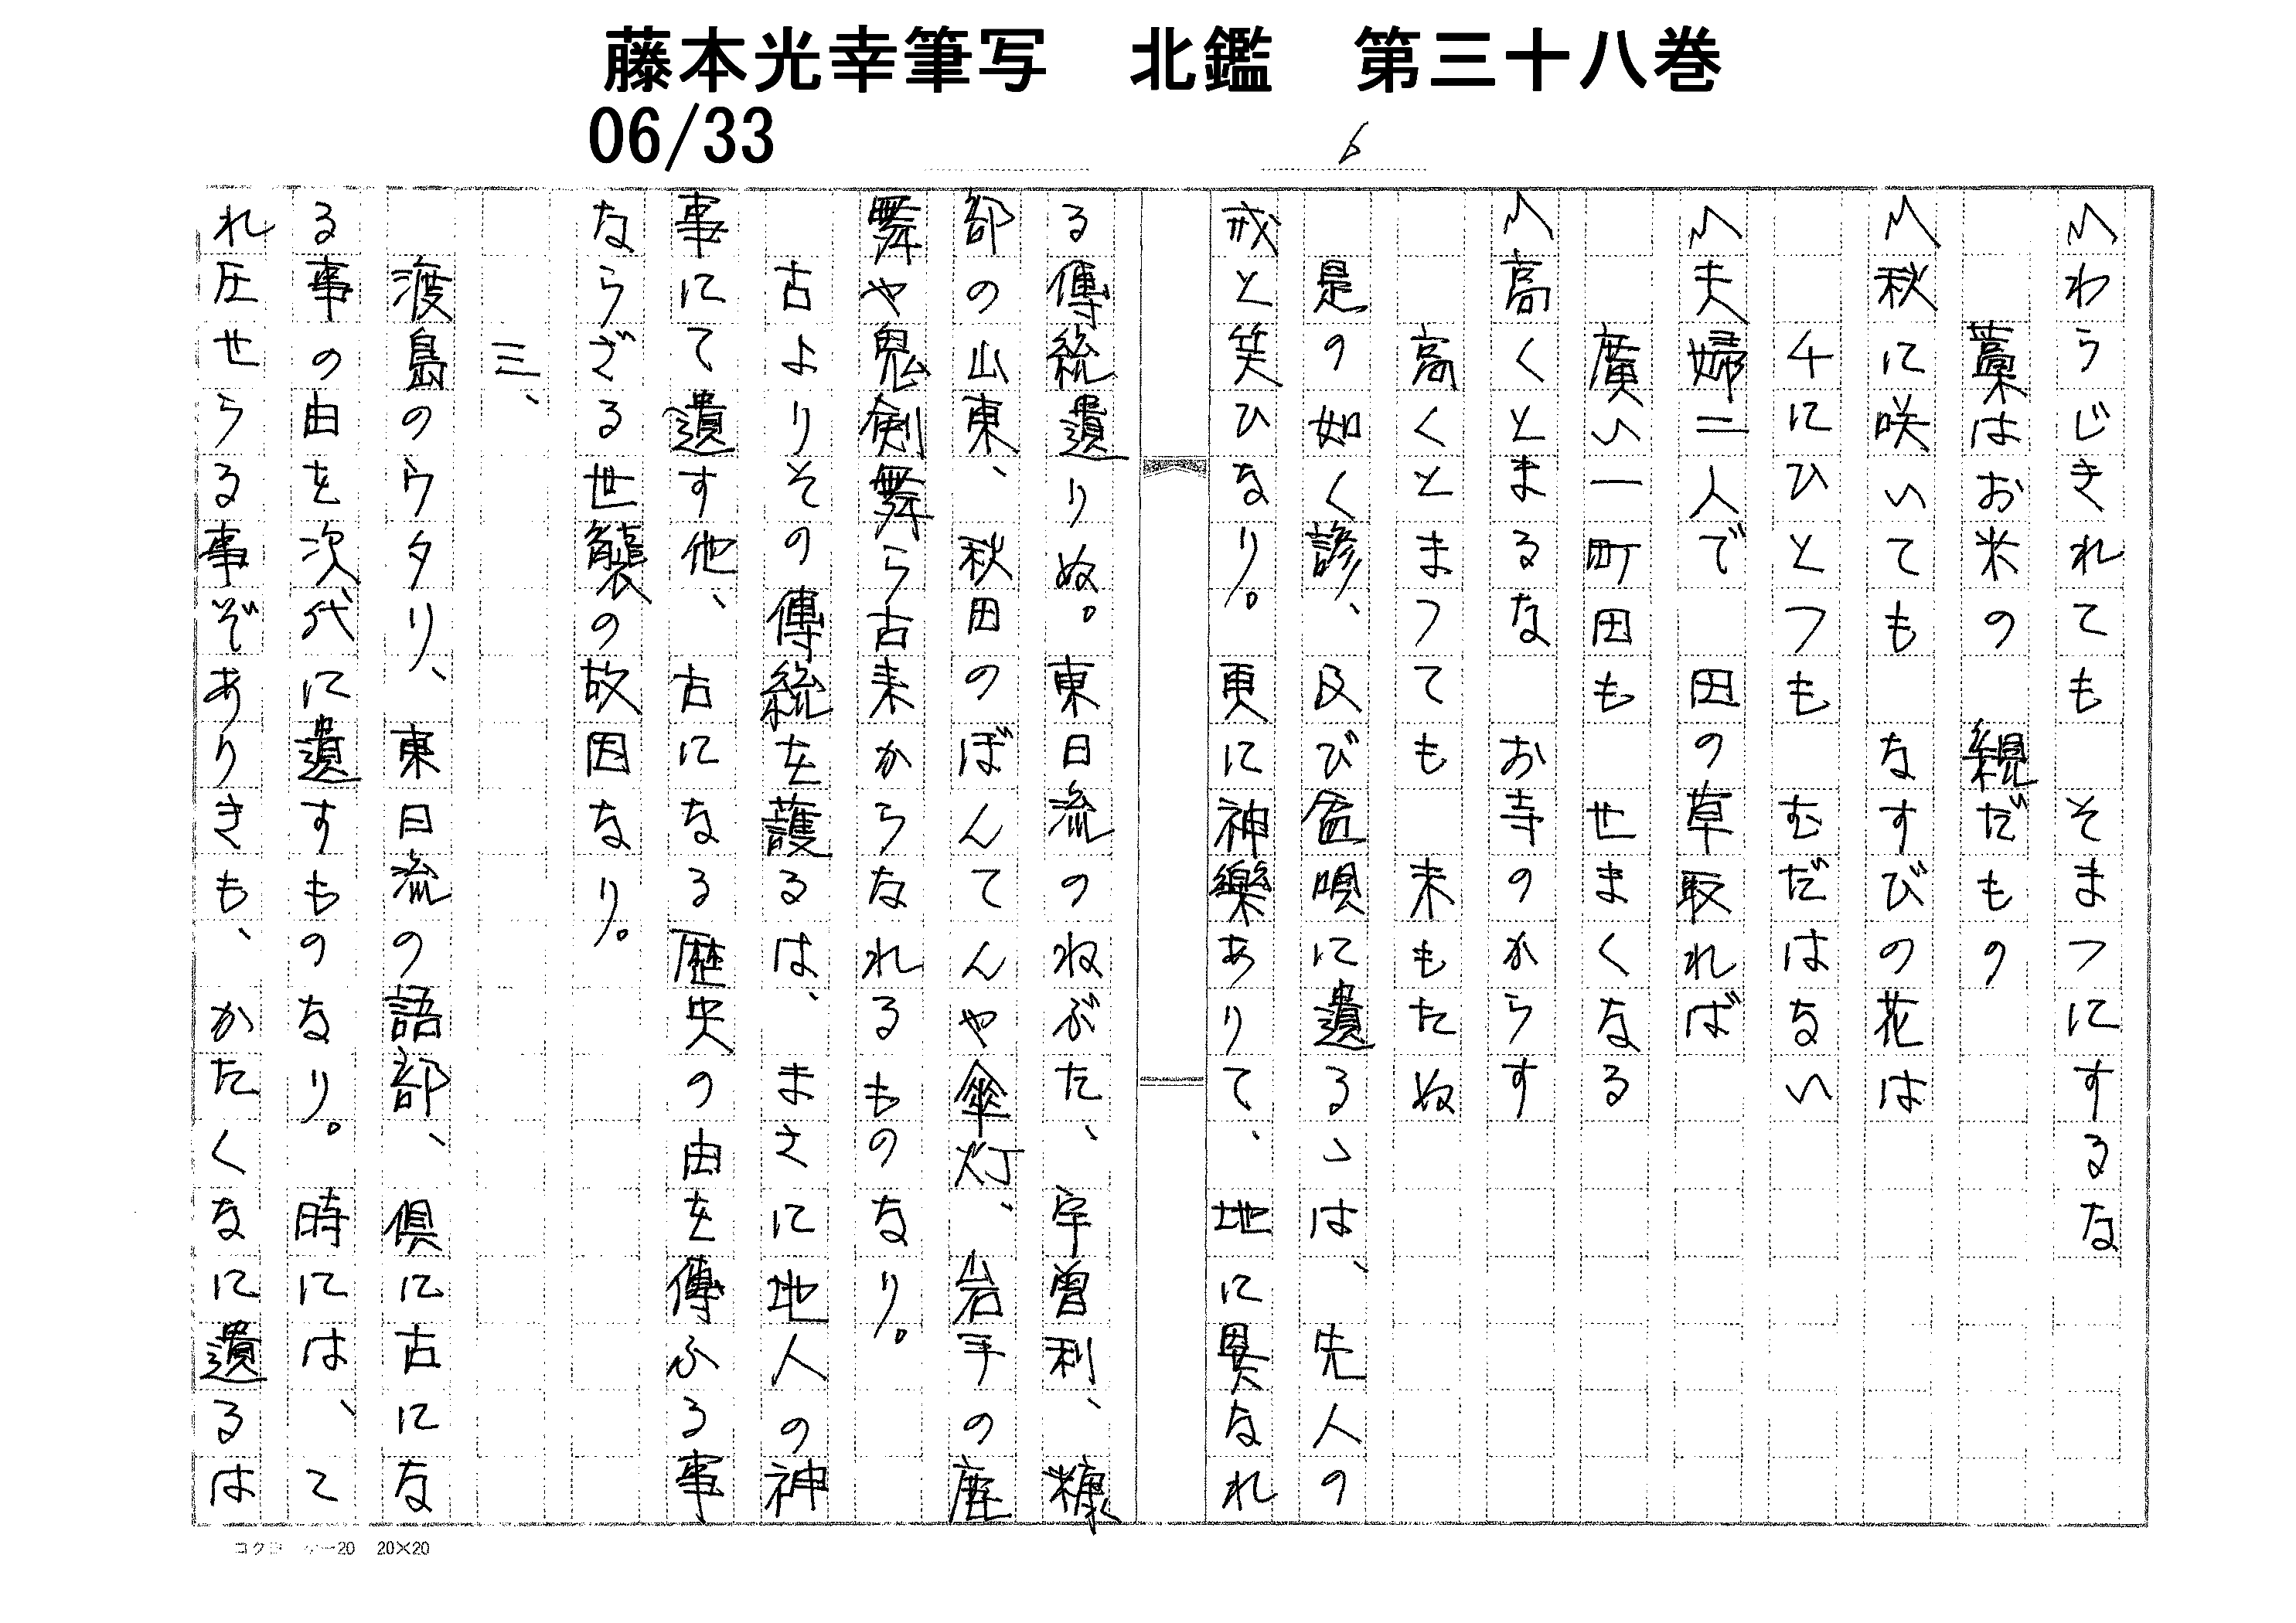 藤本光幸筆写　北鑑　第三十八巻
06/33
6
〽わらじきれても　そまつにするな
藁はお米の　親だもの
〽秋に咲いても　なすびの花は
千にひとつも　むだはない
〽夫婦二人で　田の草取れば
廣い一町田も　せまくなる
〽高くとまるな　お寺のからす
高くとまつても　末もたぬ
是の如く諺、及び盆唄に遺るゝは、先人の
戒と笑ひなり。更に神樂ありて、地に異なれ
る傳統遺りぬ。東日流のねぶた、宇曽利、糠
部の山東、秋田のぼんてんや傘灯、岩手の鹿
舞や鬼剣舞ら古来からなれるものなり。
古よりその傳統を護るは、まさに地人の神
事にて遺す他、古になる歴史の由を傳ふる事
ならざる世襲の故因なり。
三、
渡島のウタリ、東日流の語部、倶に古にな
る事の由を次代に遺すものなり。時には、て
れ圧せらる事ぞありきも、かたくなに遺るは
コクヨ　ケー20　20×20